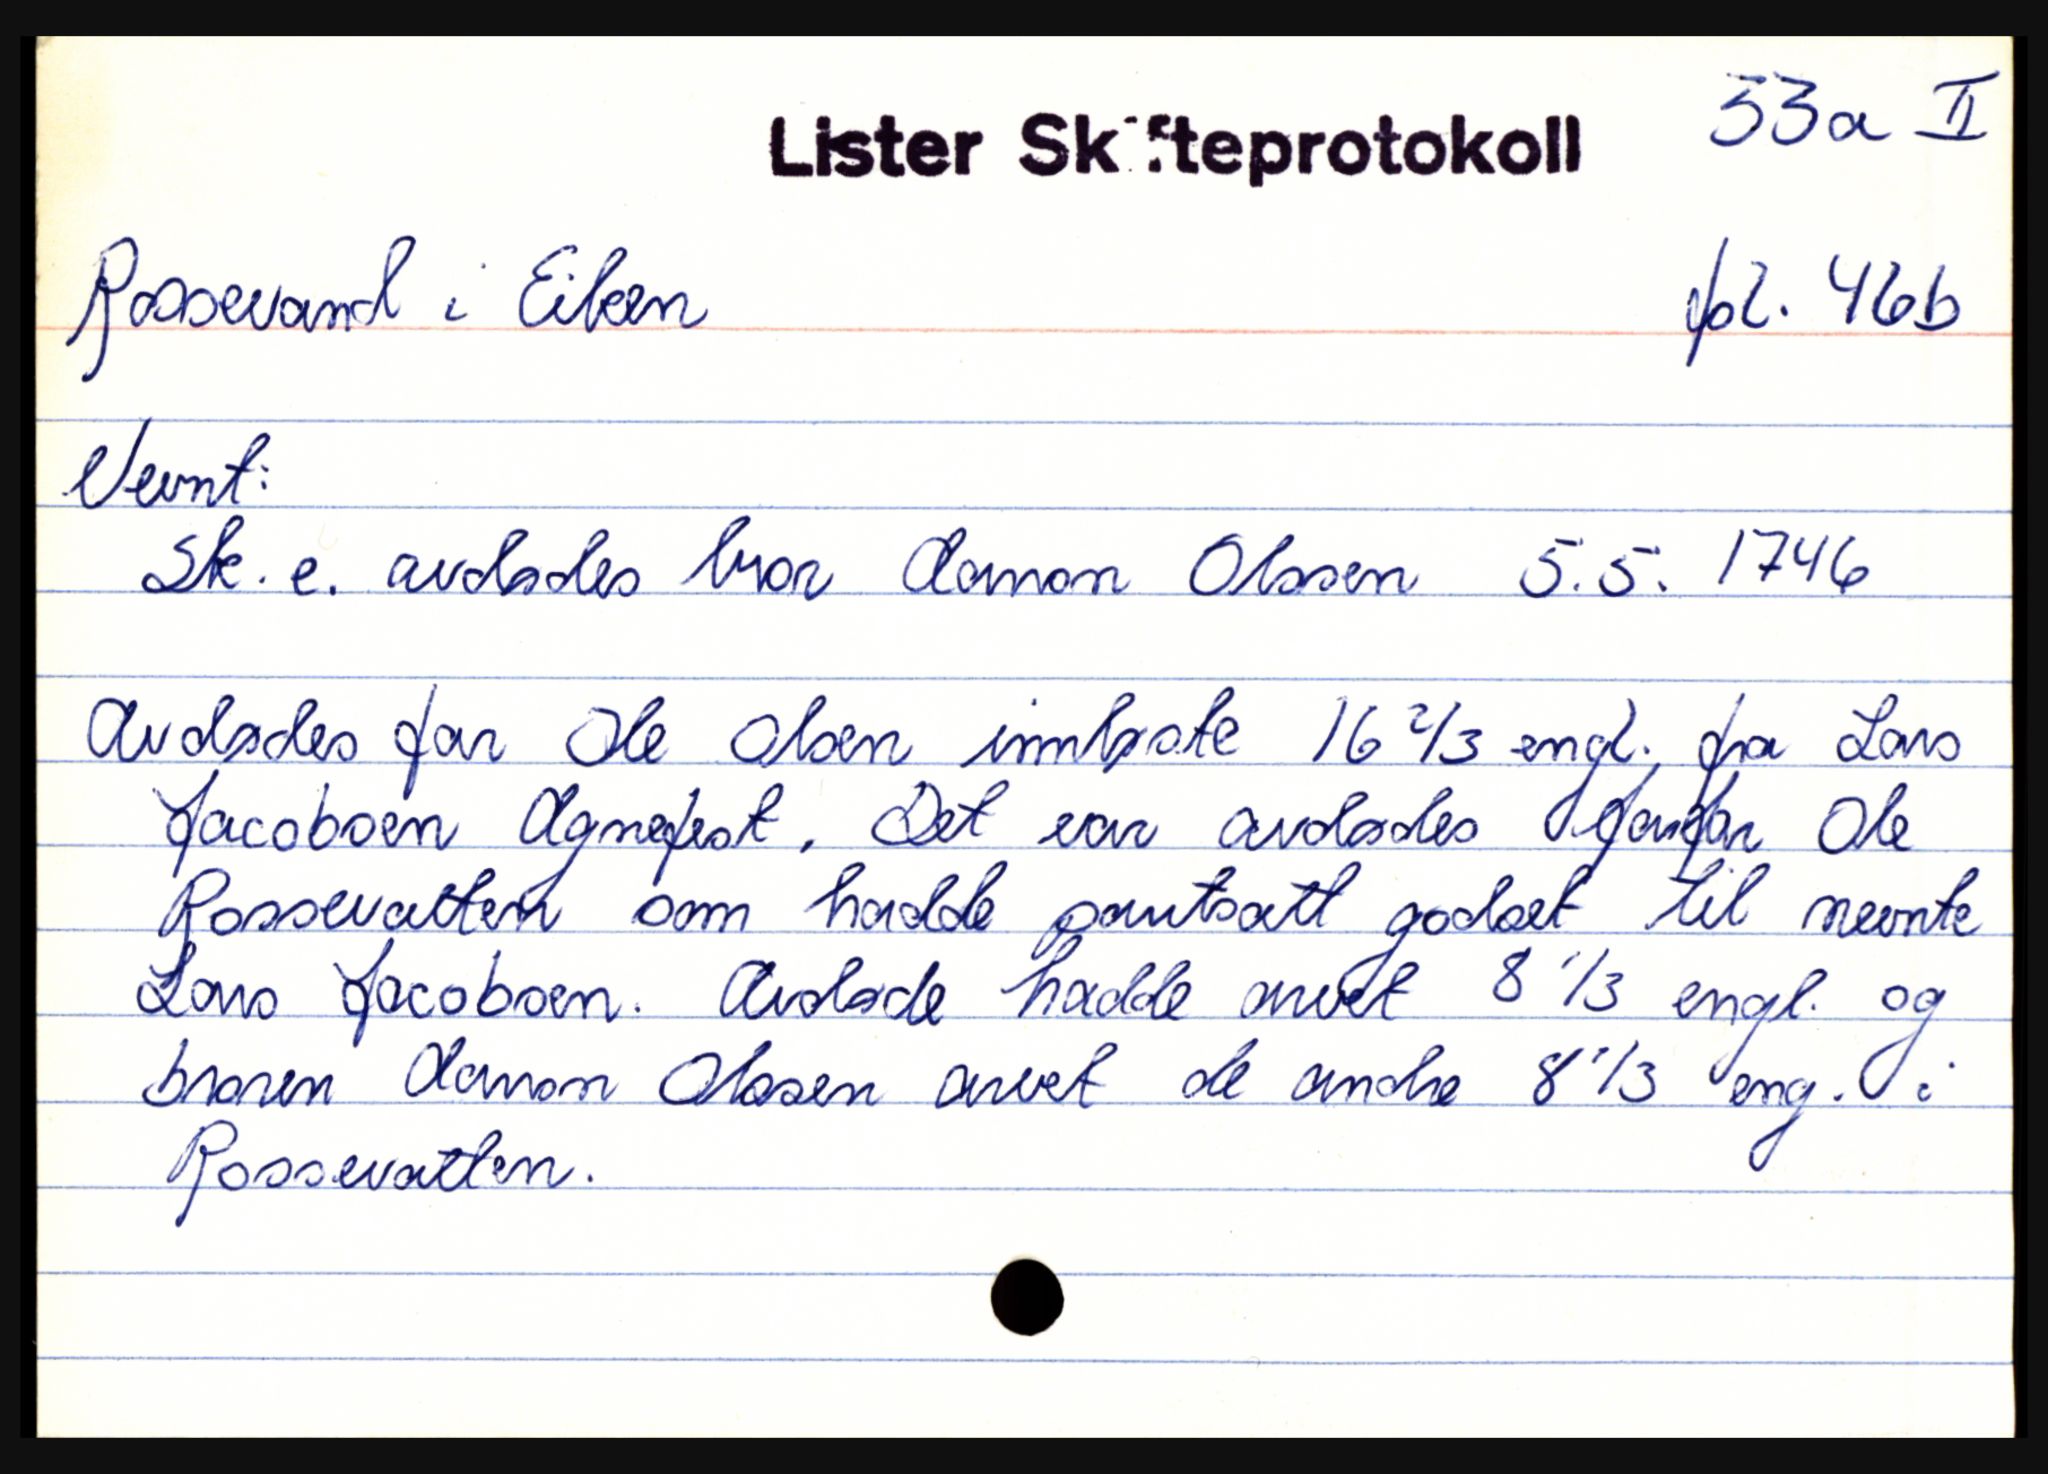 33a II
Lister Skifteprotokoll
Rossevand i Eiken fol. 46b
Nevnt:
Sk. e. avdødes bror Aamon Olssen 5.5. 1746
Avdødes far Ole Olsen innløste 16 2/3 engl. fra Lars
Jacobsen Agnefest. Det var avdødes farfar Ole
Rossevatten som hadde pantsatt godset til nevnte
Lars Jacobsen. Avdøde hadde arvet 8 1/3 engl. og
broren Aamon Olssen arvet de andre 8 1/3 eng. i
Rossevatten.